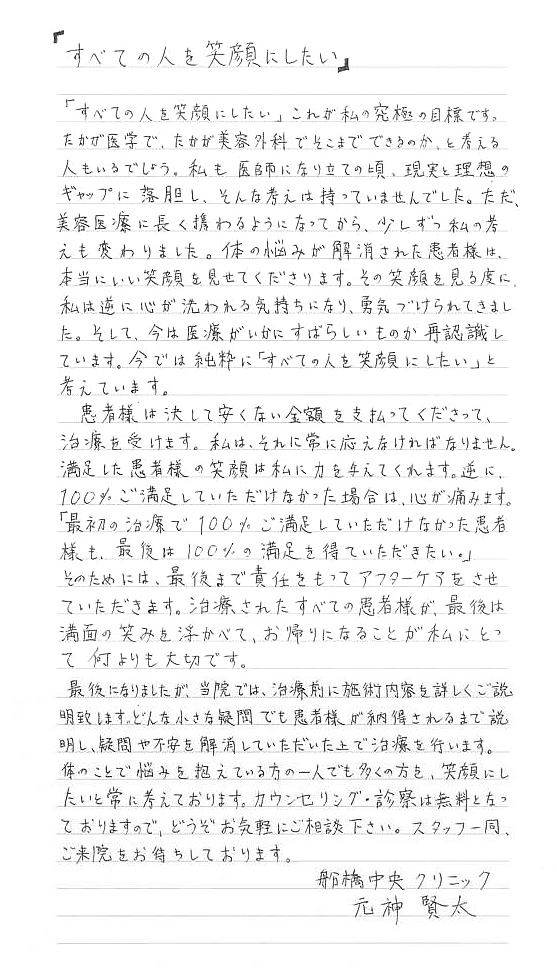 『すべての人を笑顔にしたい』
「すべての人を笑顔にしたい」これが私の究極の目標です。
たかが医学で、たかが美容外科でそこまでできるのか、と考える
人もいるでしょう。私も医師になり立ての頃、現実と理想の
ギャップに落胆し、そんな考えは持っていませんでした。ただ、
美容医療に長く携わるようになってから、少しずつ私の考
えも変わりました。体の悩みが解消された患者様は、
本当にいい笑顔を見せてくださります。その笑顔を見る度に、
私は逆に心が洗われる気持ちになり、勇気づけられてきまし
た。そして、今は医療がいかにすばらしいものか再認識し
ています。今では純粋に「すべての人を笑顔にしたい」と
考えています。
患者様は決して安くない金額を支払ってくださって、
治療を受けます。私は、それに常に応えなければなりません。
満足した患者様の笑顔は私に力を与えてくれます。逆に、
100%ご満足していただけなかった場合は、心が痛みます。
「最初の治療で100%ご満足していただけなかった患者
様も、最後は100%の満足を得ていただきたい。」
そのためには、最後まで責任をもってアフターケアをさせ
ていただきます。治療されたすべての患者様が、最後は
満面の笑みを浮かべて、お帰りになることが私にとっ
て何よりも大切です。
最後になりましたが、当院では、治療前に施術内容を詳しくご説
明致します。どんな小さな疑問でも患者様が納得されるまで説
明し、疑問や不安を解消していただいた上で治療を行います。
体のことで悩みを抱えている方の一人でも多くの方を、笑顔にし
たいと常に考えております。カウンセリング・診察は無料となっ
ておりますので、どうぞお気軽にご相談下さい。スタッフ一同、
ご来院をお待ちしております。
船橋中央クリニック
元神 賢太